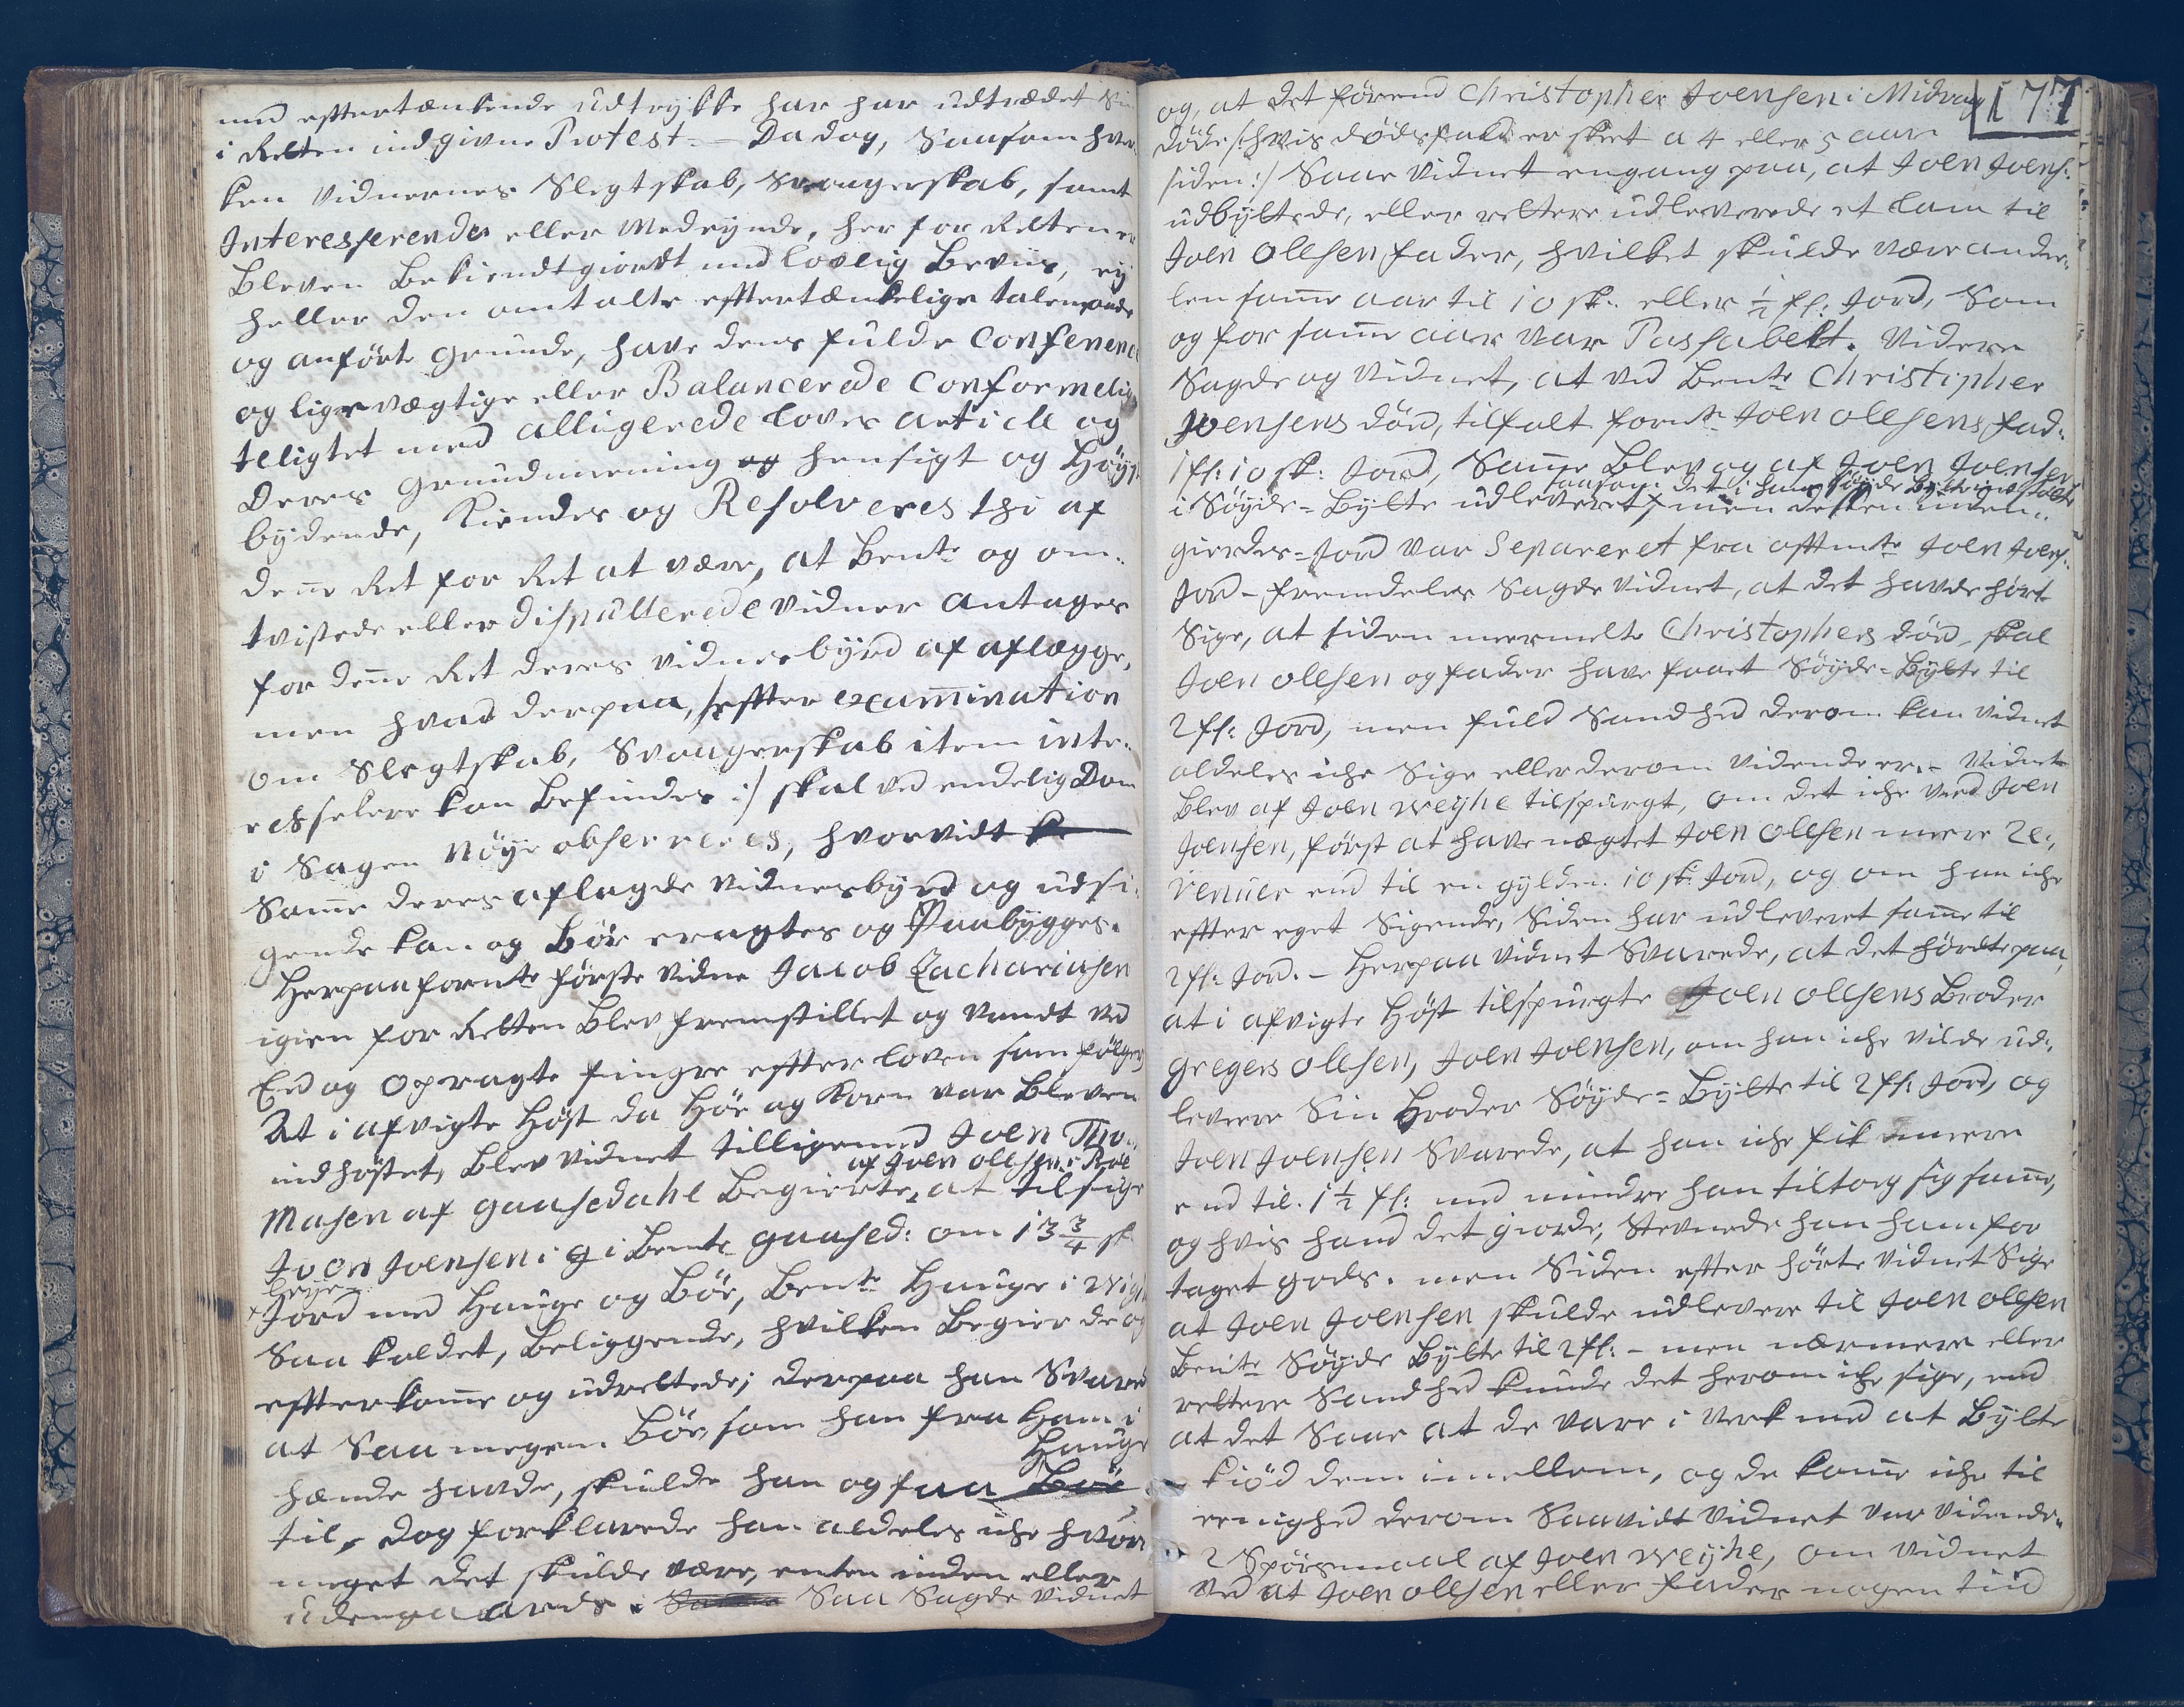 med efftertænkende udtrykke har har udtrædet Sin
i Retten indgivne Protest. – Da dog, Saasom hver-
ken Vidnernes Slegtskab, Svaugerskab, samt
Interesserendes eller Medeynde, her for Retten er
bleven bekiendtgiordt med lovlig Beviis, ey
heller den omtalte efftertænkelige talemaade
og anførte grunde, have dens fulde Conference
og ligevægtige eller Balancerede Conformelig-
teligtet med alligerede Loves Article og
Deres grundmeening og hensigt og Høyst-
bydende, Kiendes og Resolveres thi af
denne Ret for Ret at være, at bente og om-
tvistede eller Dispütterede Vidner antages
for denne Ret deres Vidnesbyrd af aflægge,
men hvad derpaa, /: effter examination
om Slegtskab, Svaugerskab item inte-
resselere kan befindes :/ skal ved endelig Dom
i Sagen nøye observeres, hvorvidt
Samme deres aflagde Vidnesbyrd og udsi-
gende kan og bør eragtes og Paabygges.
Herpaa fornte første Vidne Jacob Zachariasen
igien for Retten blev fremstillet og Vandt ved
Eed og Opragte fingre effter loven som følger
At i afvigte Høst da Høe og Korn var bleven
indhøstet, blev Vidnet tilligemed Joen Tho-
af Joen Ollsen i Röe
masen af Gaasedahl begierte, at tilsige
Joen Joensen i g i bemte Gaased: om 13 3/4 sk
Leye
Jord med Hauge og Bøe, bente Hauge i
Saa kaldet, beliggende, hvilken begier de og
effterkomme og udrettede; derpaa han Svared
at Saa megen Bøe, som han fra Ham i
Hauge
hænde havde, skulde han og faa Bøe
til, dog forklarede han aldeles iche hvor
meget det skulde være, enten inden eller
udengaards. Saa Sagde Vidnet
177
og, at det førend Christopher Joensen i Midvaag
døde /: hvis dødsfald er skeet a 4 eller 5 aar
siden :/ Saae Vidnet engang paa, at Joen Joens:
udbyttede, eller rettere udleverede et Lam til
Joen Ollsen Fader, hvilket skulde være ande-
len samme aar til 10 sk: eller 1/2 fl: Jord, Som
og for samme aar var Passabelt. Videre
Sagde og Vidnet, at ved bente Christipher
Joensens död, tilfalt fornte Joen Ollsens fad:
1 fl: 10 sk: Jord, Samme blev og af Joen Joensen
saasom det i hans Söyde bytte indfaldt
i Söyde-Bytte udleveret, men deften inden-
gierdes-Jord var Separeret fra offtmte Joen Joens:
Jord – fremdeles Sagde Vidnet, at det havde hørt
Sige, at siden meermelte Christophers död, skal
Joen Ollsen og fader have faaet Söyde-Bytte til
2 fl: Jord, men fuld Sandhed derom kan Vidnet
aldeles iche Sige eller derom vidende er. – Vidnet
blev af Joen Weyhe tilspurgt, om det iche veed Joen
Joensen, først at have nægtet Joen Ollsen meere Re-
venüer end til en gylden 10 sk Jord, og om han iche
effter eget Sigende, Siden har udleveret samme til
2 fl: Jord. – Herpaa Vidnet Svarede, at det hørdte paa,
at i afvigte Høst tilspurgte Joen Ollsens Broder
Gregers Ollsen, Joen Joensen, om han iche vilde ud-
levere Sin Broder Söyde-Bytte til 2 fl: Jord, og
Joen Joensen Svarede, at han iche fik meere
end til 1 1/2 fl: med mindre han tiltog sig samme,
og hvis hand det giorde, Stevnede han ham for
taget gods. men Siden effter hørte Vidnet Sige
at Joen Joensen skulde udlevere til Joen Ollsen
bente Söyde Bytte til 2 fl: – men nærmere eller
rettere Sandhed kunde det herom iche sige, end
at det Saae at de vare i Verk med at Bytte
kiød dem imellem, og de komme iche til
eenighed derom Saavidt Vidnet var vidende.
2 Spørsmaal af Joen Weyhe, om Vidnet
Ved at Joen Ollsen eller fader nogen tiid